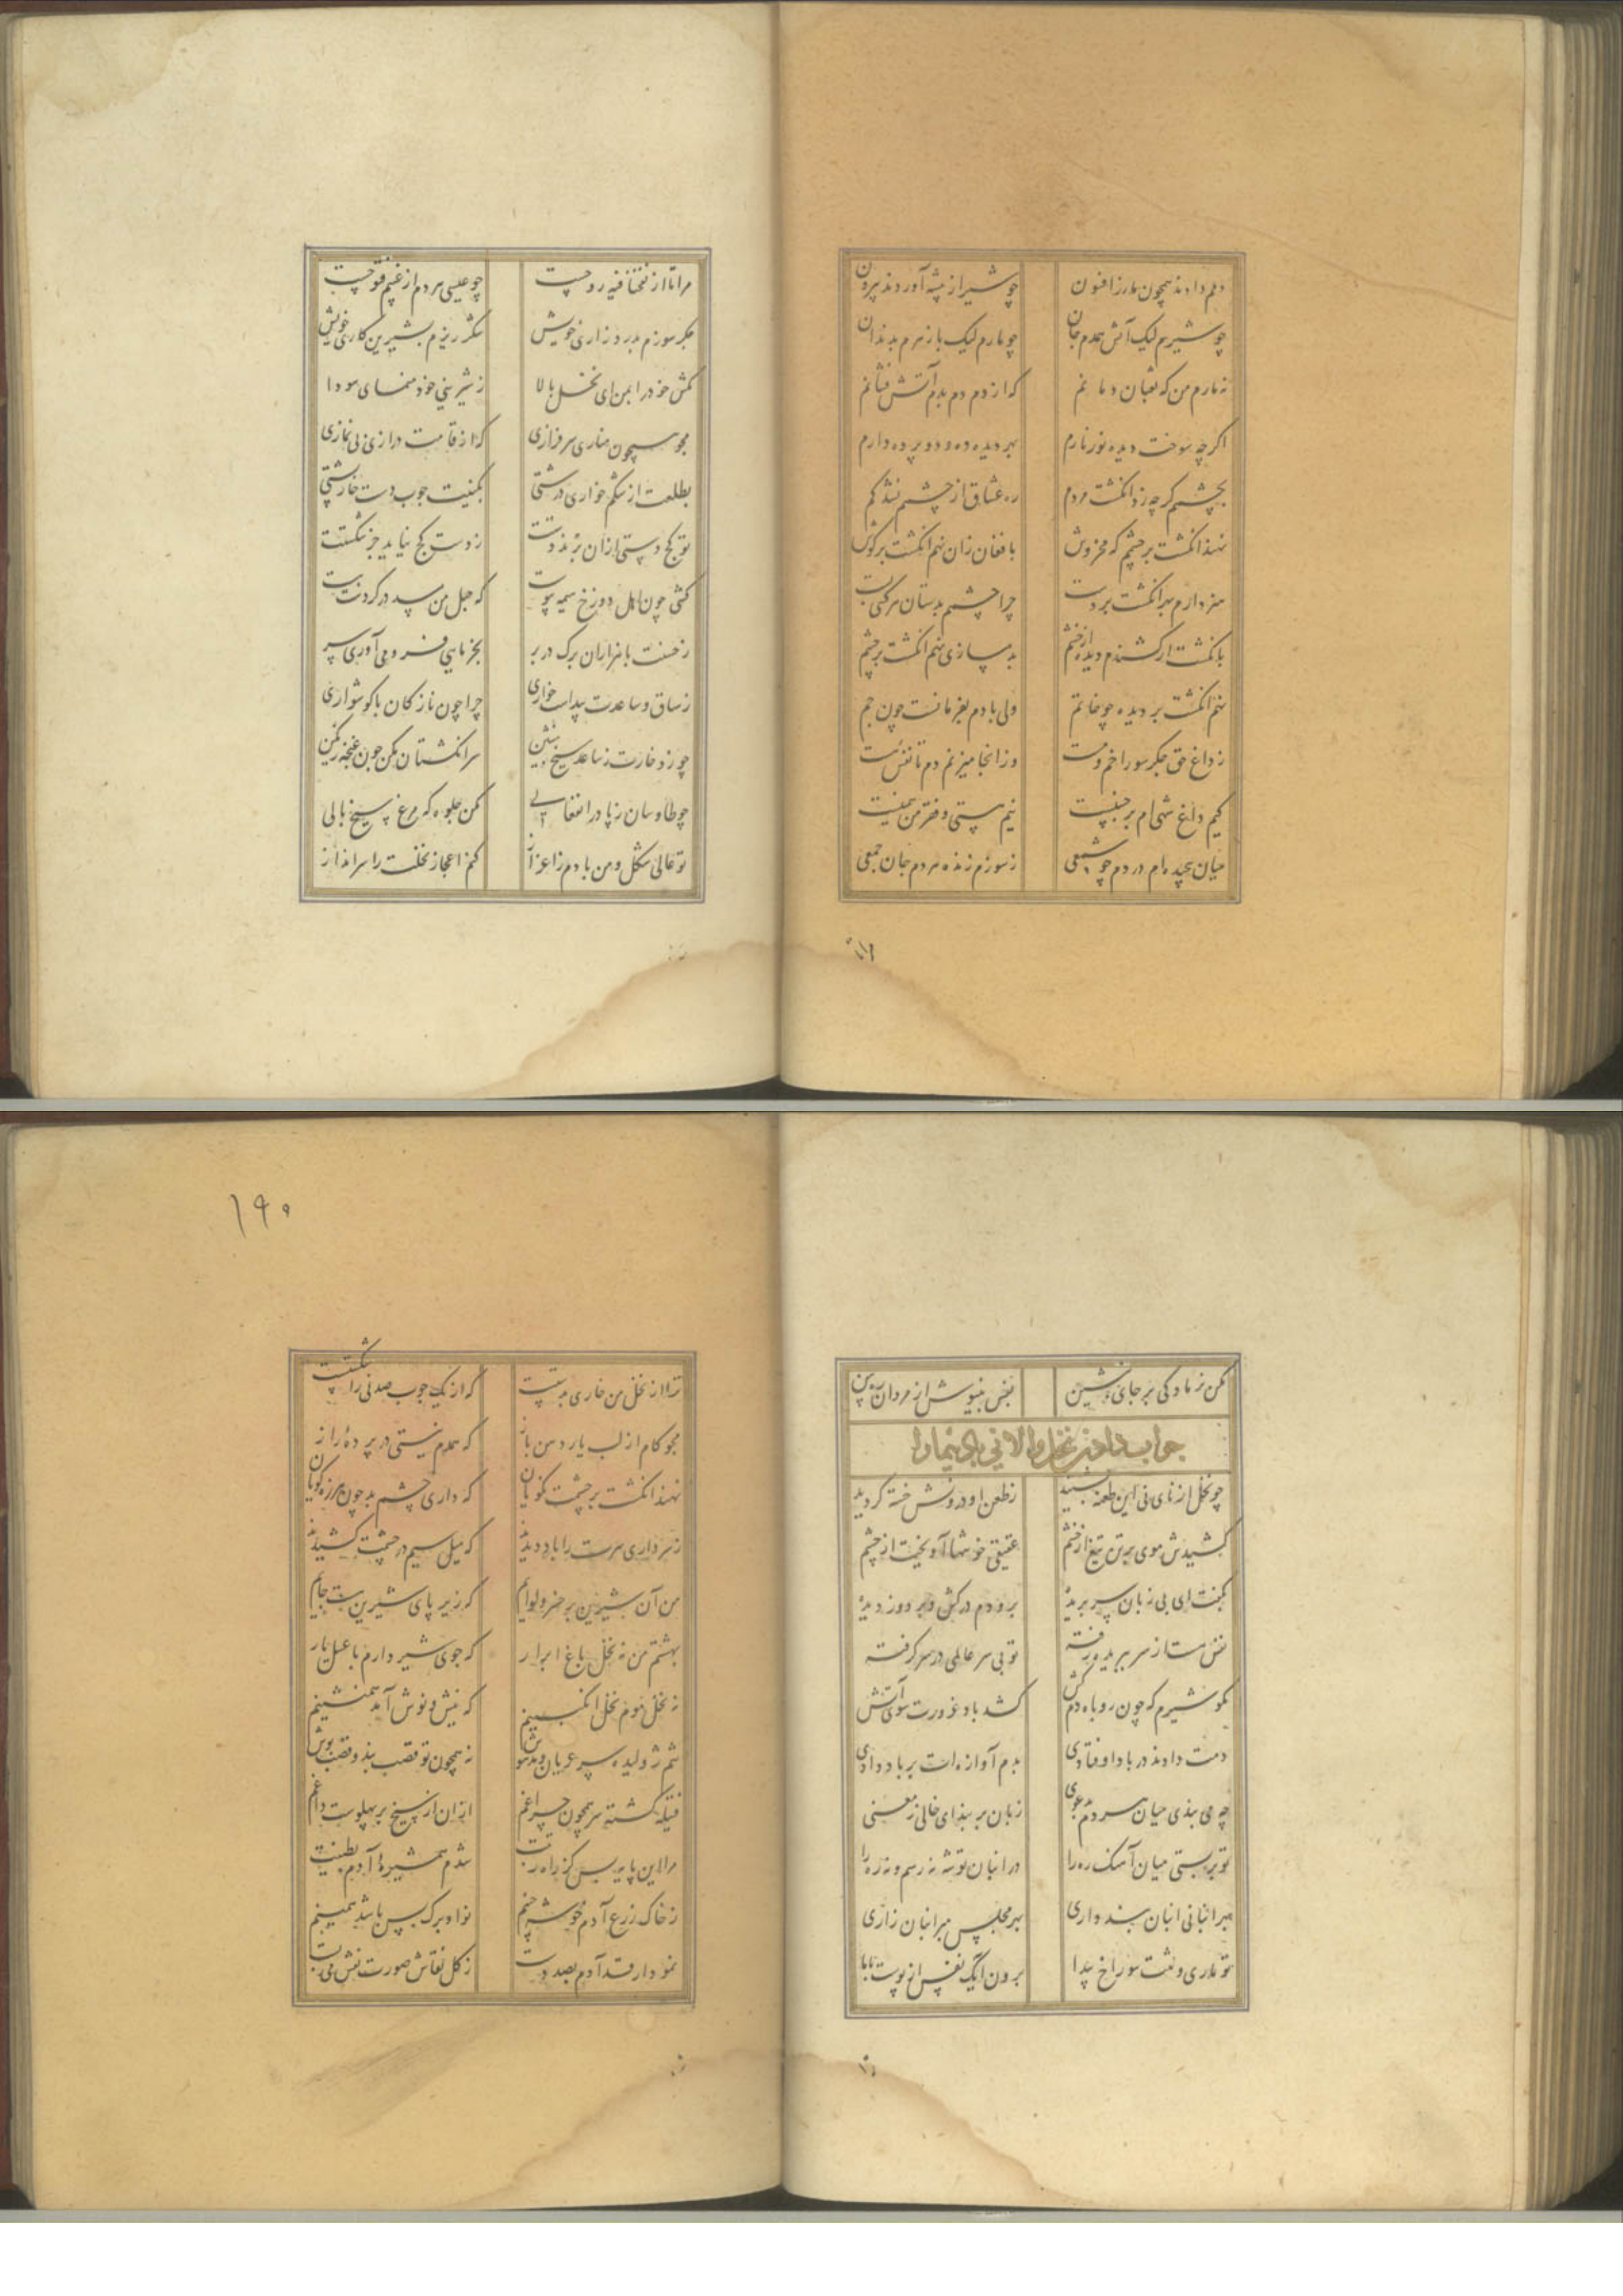 دلم دادند همچون مار ز افسون
چو شیر از بیشه آوردند بیرون
چو شیرم لیک آتش همدم جان
چو مارم لیک بازهرم بدندان
نه مارم من که ثعبان دمانم
که از دم دم بدم آتش فشانم
اگرچه سوخت دیده نور نارم
بهر دیده ده و دو پرده دارم
بچشمم گرچه زد انگشت مردم
ره عشاق از چشمم نشد گم
نهند انگشت بر چشمم که مخروش
بافغان زان نهم انگشت بر گوش
هنر دارم هر انگشت بر دست
چرا چشمم بدستان هر کسی بست
بانگشت ار کشندم دیده از خشم
بدسازی نهم انگشت بر چشم
نهم انگشت بر دیده چو خاتم
ولی بادم بفرمانست چون جم
ز داغ حق جگر سوراخم و مست
وز انجا میزنم دم تا نفس هست
کیم داغ شهی ام بر جبین نیست
نیم پستی و فقر من همین نیست
میان پیچیده ام در دم چو شمعی
ز سوزم زنده هر دم جان جمعی
مرا تا از نفخنا فیه روحست
چو عیسی هر دم از غیبم فتوحست
جگر سوزم بدرد زاری خویش
شکر ریزم بشیرین کاری خویش
مکش خود را بمن ای نخل بالا
ز شیرینی خود منمای سودا
مجو همچون مناری سرفرازی
که از قامت درازی بی نمازی
بطلعت از شکم خواری درشتی
بکینیت چوب دست خارپشتی
تو کج دستی ازان برند دستت
ز دست کج نیاید جز شکستت
کشی چون اهل دوزخ هیمه پیوست
که حبل من مسد در گردنت هست
ز خستت با هزاران برگ در بر
بجز نایی فرو می آوری سر
ز ساق و ساعدت پیداست خواری
چرا چون نازکان با گوشواری
چو زد خارت ز ساعد سیخ بنشین
سر انگشتان مکن چون غنچه رنگین
چو طاوسان ز پا در انفعالی
مکن جلوه که مرغ سیخ بالی
تو عالی شکل و من با دم ز اعزاز
کم اعجاز نخلت را سر انداز
مکن ز مادگی بر جای بنشین
نفس بنیوش از مردان پیشین
جواب دادن نخل والا نی بادپیما را
چو نخل از نای نی این طعنه بشنید
ز طعن او درونش خسته گردید
کشیدش موی بر تن تیغ از خشم
عقیقی خوشها آویخت از چشم
بگفت ای بی زبان سر بریده
برو دم درکش و بر دوز دیده
نفس مستا ز سر ببریده رفته
تو بی سر عالمی در سر گرفته
مگو شیرم که چون روباه دم کش
کشد باد غرورت سوی آتش
دمت دادند در باد اوفتادی
بدم آوازه ات بر باد دادی
چه می بندی میان هر دم بدعوی
زبان بر بند ای خالی ز معنی
تو بربستی میان آهنگ ره را
در انبان توشه نه رسم و نه ره را
میر انبانی انبان بسته داری
بهر مجلس میر انبان زاری
تو ماری و نشت سوراخ پیدا
برون آیک نفس از پوست بابا
ترا از نخل من خاری بدستست
که از یک چوب صد نی را شکستست
مجو کام از لب یار دهن باز
که همدم نیستی در پرده راز
نهند انگشت بر چشمت نکویان
که داری چشم بد چون هرزه گویان
ز سر داری سرت را باد دیدند
که میل سیم در چشمت کشیدند
من آن شیرین بر خسرو لوایم
که زیر پای شیرین هست جایم
بهشتم من نه نخل باغ ابرار
که جوی شیر دارم با عسل یار
نه نخل موم نخل انگبینم
که نیش و نوش آمد همنشینم
نیم ژولیده سر عریان و مدهوش
نه همچون تو قصب بند و قصب پوش
فتیله گشته سر همچون چراغم
ازان از سیخ بر پهلوست داغم
مرا این پایه بس کز راه رتبت
شدم همشیره آدم بطینت
ز خاک زرع آدم خوشه چینم
نوا و برگ بس باشد همینم
نمودار قد آدم بصد دست
ز گل نقاش صورت نقش می بست
۱۹۰